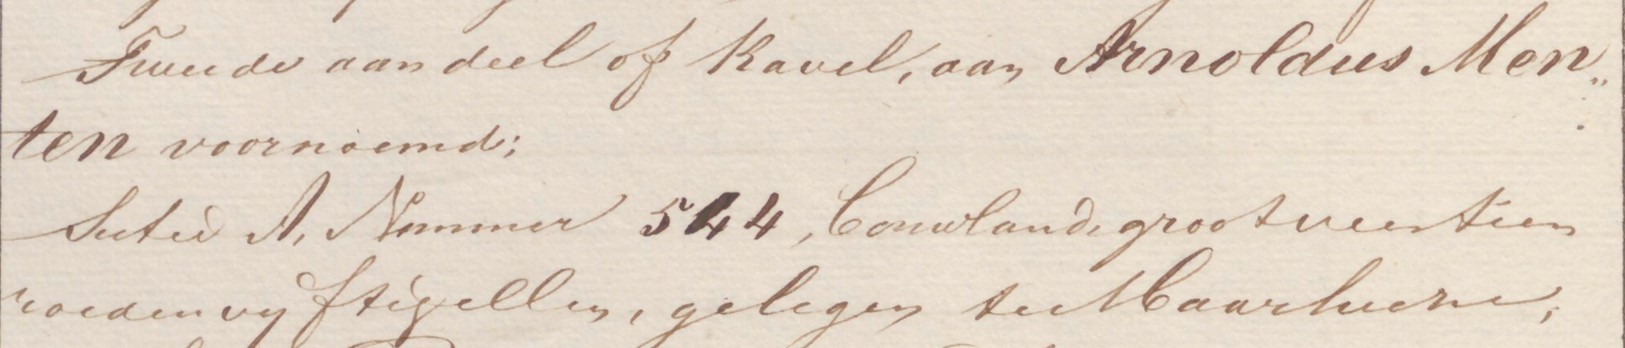 Tweede aandeel of kavel, aan Arnoldus Men„
ten voornoemd;
Sectie A, Nommer 544, Bouwland, groot veertien
roeden vyftig ellen, gelegen te Maarheeze,